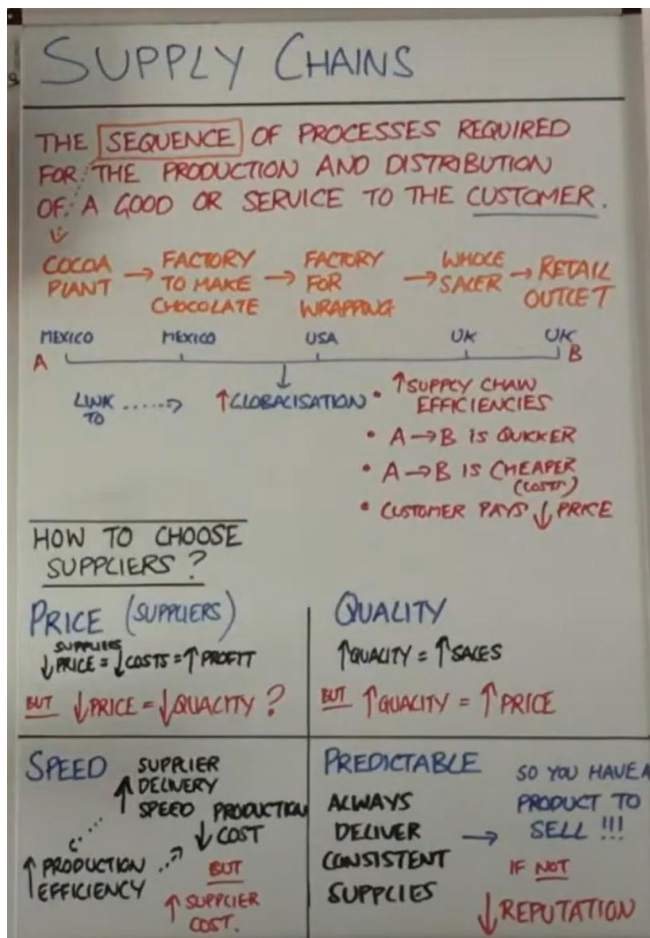 SUPPLY CHAINS
THE SEQUENCE OF PROCESSES REQUIRED
FOR THE PRODUCTION AND DISTRIBUTION
OF A GOOD OR SERVICE TO THE CUSTOMER.
COCOA PLANT → FACTORY TO MAKE CHOCOLATE → FACTORY FOR WRAPPING → WHOLE SALER → RETAIL OUTLET
MEXICO MEXICO USA UK UK
A B
LINK TO ⇢ ↑GLOBALISATION
• ↑SUPPLY CHAIN
EFFICIENCIES
• A→B IS QUICKER
• A→B IS CHEAPER
(COSTS)
• CUSTOMER PAYS ↓ PRICE
HOW TO CHOOSE
SUPPLIERS?
PRICE (SUPPLIERS)
SUPPLIES
↓PRICE = ↓COSTS = ↑PROFIT
BUT ↓PRICE = ↓QUALITY?
QUALITY
↑QUALITY = ↑SALES
BUT ↑QUALITY = ↑PRICE
SPEED
↑ SUPPLIER
DELIVERY
SPEED
↑ PRODUCTION
EFFICIENCY
PRODUCTION
↓ COST
BUT
↑ SUPPLIER
COST.
PREDICTABLE
ALWAYS
DELIVER
CONSISTENT
SUPPLIES
→
SO YOU HAVE A
PRODUCT TO
SELL!!!
IF NOT
↓REPUTATION